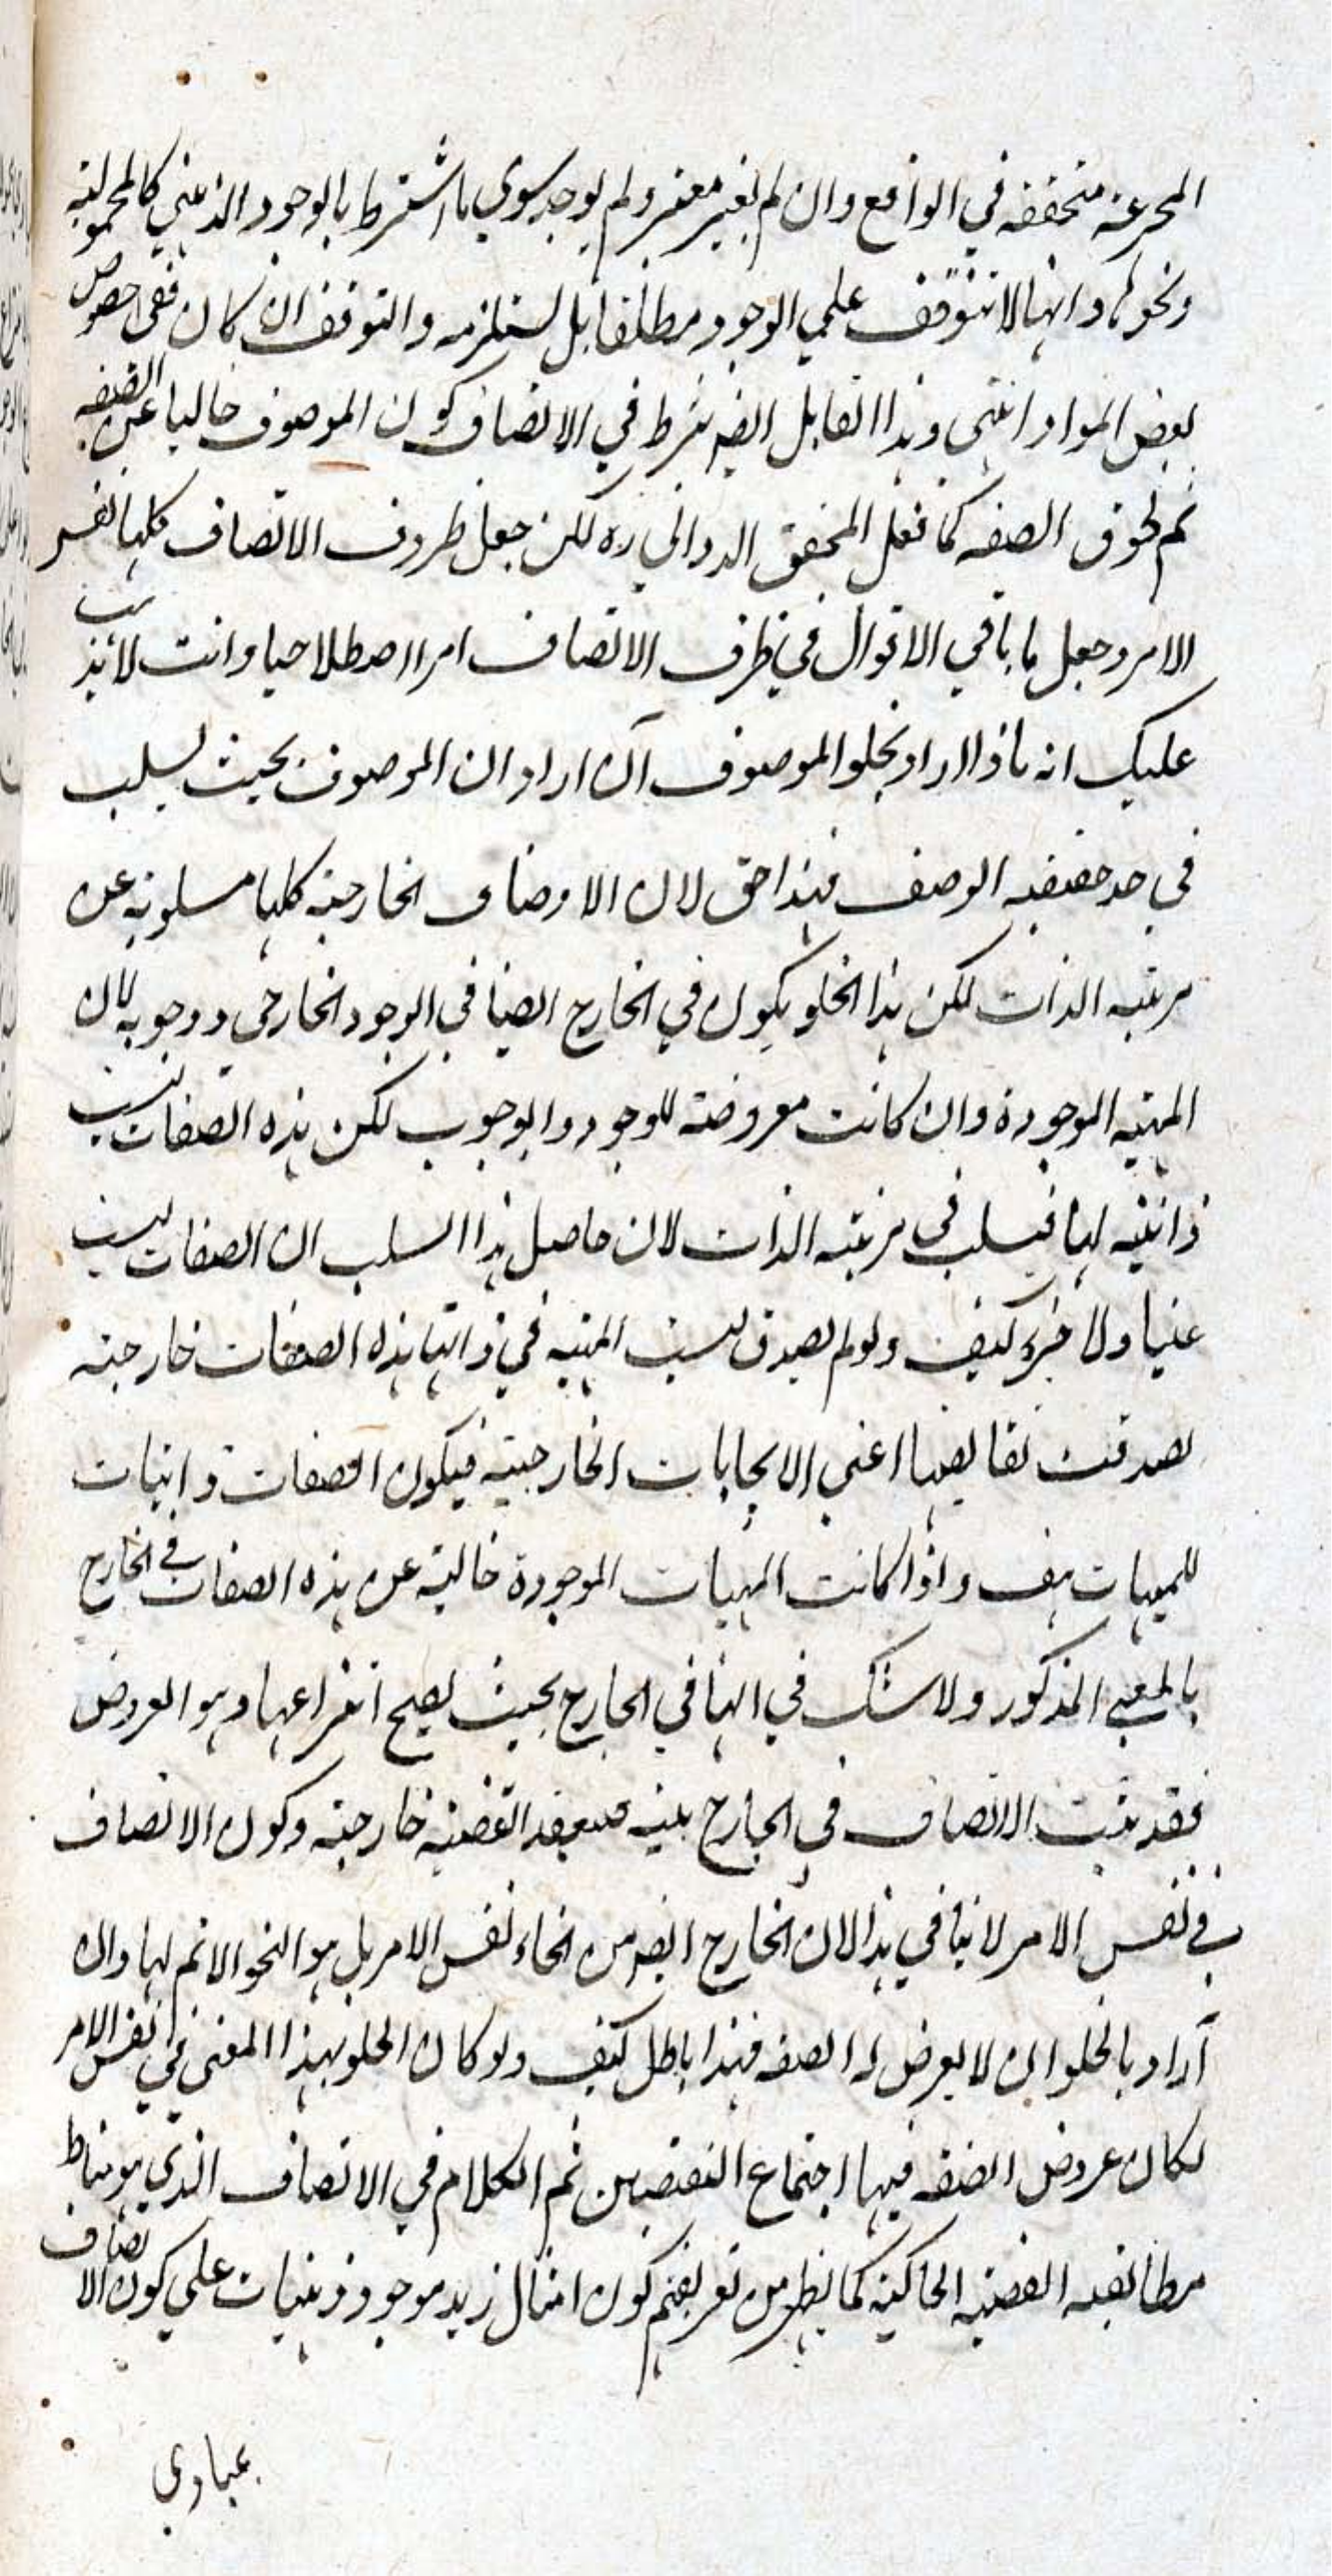 المخترعة متحققة في الواقع وان لم يعتبر معتبر ولم يوجد سوي ما اشترط بالوجود الذهني كالمحمولية
ونحوها وانها لا تتوقف علي الوجود مطلقا بل يستلزمه والتوقف ان كان ففي خصوص
بعض المواد انتهى وهذا القايل ايضا شرط في الاتصاف كون الموصوف خاليا عن الصفة
ثم لحوق الصفة كما نقل المحقق الدواني ره لكن جعل ظروف الاتصاف كلها نفس
الامر وجعل ما باقي الاقوال في ظرف الاتصاف امرا اصطلاحيا وانت لا يذهب
عليك انه ماذا اراد بخلو الموصوف ان اراد ان الموصوف بحيث يسلب
في حد حقيقة الوصف فهذا حق لان الاوصاف الخارجية كلها مسلوبة عن
مرتبة الذات لكن هذا الخلو يكون في الخارج ايضا في الوجود الخارجي ووجوبه لان
المهية الموجودة وان كانت معروضة للوجود والوجوب لكن هذه الصفات ليست
ذاتية لها فيسلب في مرتبة الذات لان حاصل هذا السلب ان الصفات ليست
عينا ولا جزء كيف ولو لم يصدق ليست المهية في ذاتها هذه الصفات خارجية
لصدقت نقايضها اعني الايجابات الخارجية فيكون الصفات ذاتيات
للمهيات هف واذا كانت المهيات الموجودة خالية عن هذه الصفات في الخارج
بالمعني المذكور ولا شك في انها في الخارج بحيث يصح انتزاعها وهو العروض
فقد ثبت الاتصاف في الخارج القضية خارجية وكون الاتصاف
في نفس الامر لا ينافي هذا لان الخارج ايضا من انحاء نفس الامر بل هو النحو الاتم لها وان
اراد بالخلو ان لا يعرض له الصفة فهذا باطل كيف ولو كان الخلو بهذا المعنى في نفس الامر
لكان عروض الصفة فيها اجتماع النقيضين ثم الكلام في الاتصاف الذي هو مناط
مطابقة القضية الحاكية كما يظهر من تفريعهم كون امثال زيد موجود ذهنيات علي كون الاتصاف
بمبادي